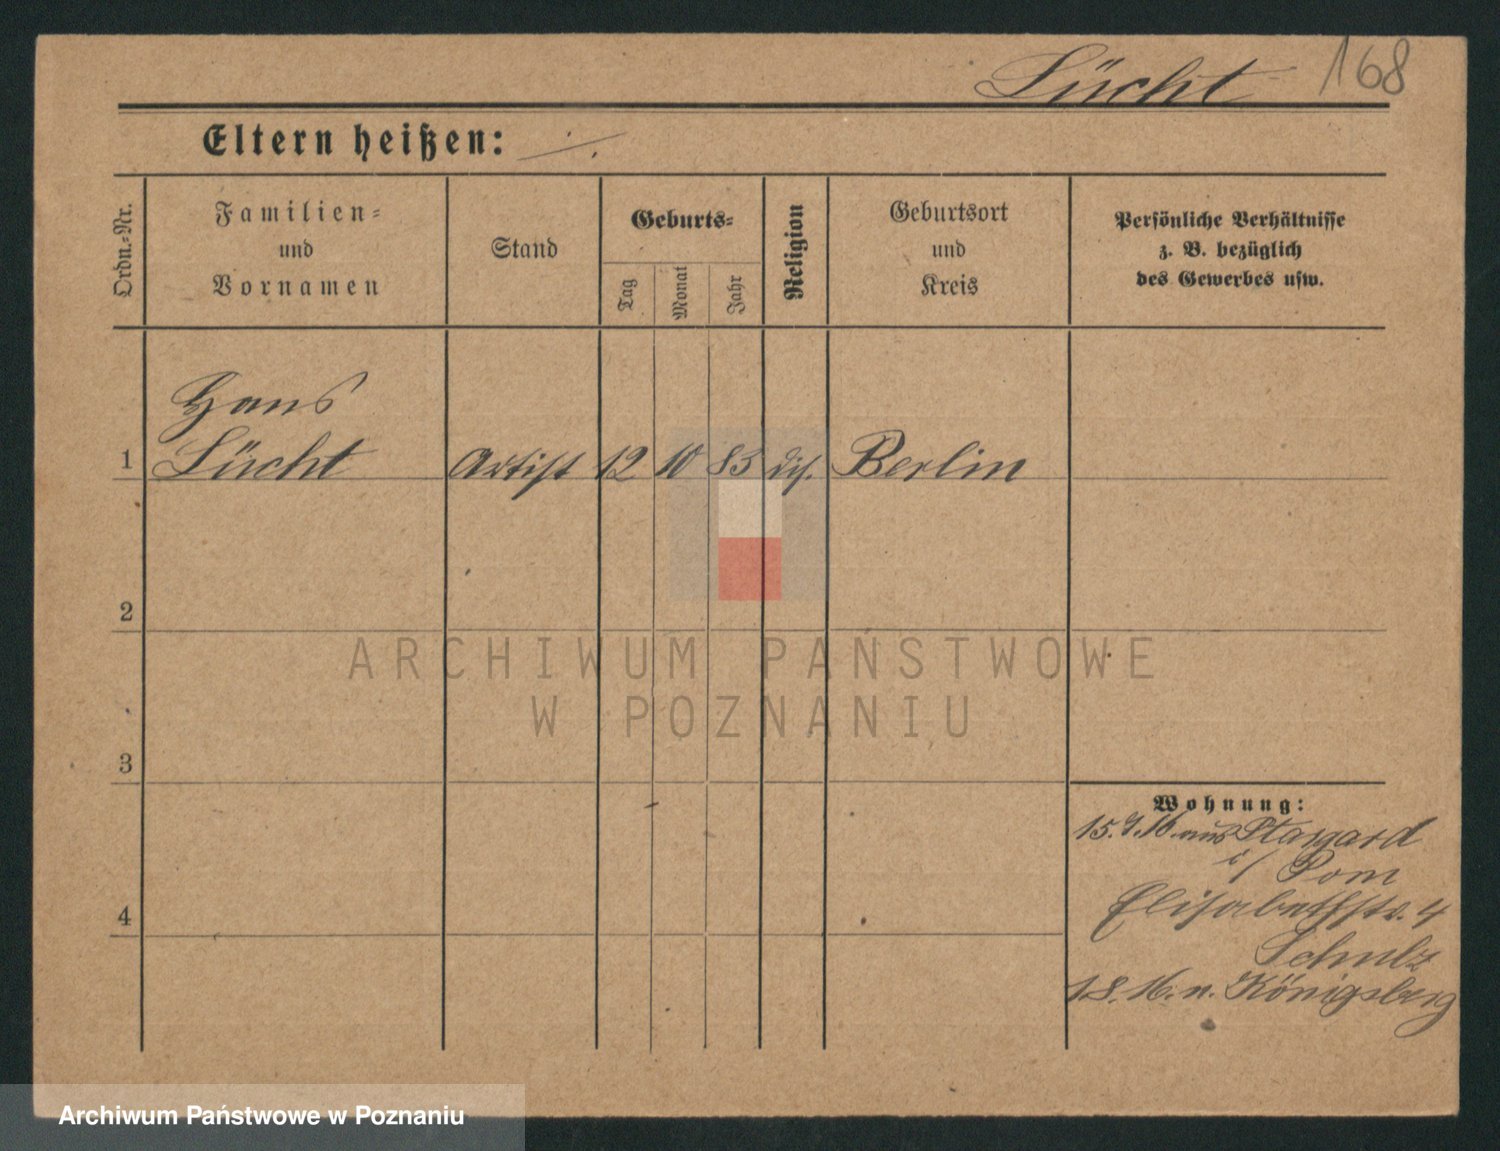 Lücht 168
Eltern heißen: ./.
Ordn.=Nr.
Familien=
und
Vornamen
Stand
Geburts=
Tag
Monat
Jahr
Religion
Geburtsort
und
Kreis
Persönliche Verhältnisse
z. B. bezüglich
des Gewerbes usw.
Hans
1 Lücht Artist 12 10 83 dis. Berlin
2
3
4
Wohnung:
15.7.16. aus Stargard
i/ Pom
Elisabethstr. 4
Schulz
1.8.16. n. Königsberg
ARCHIWUM PAŃSTWOWE
W POZNANIU
Archiwum Państwowe w Poznaniu